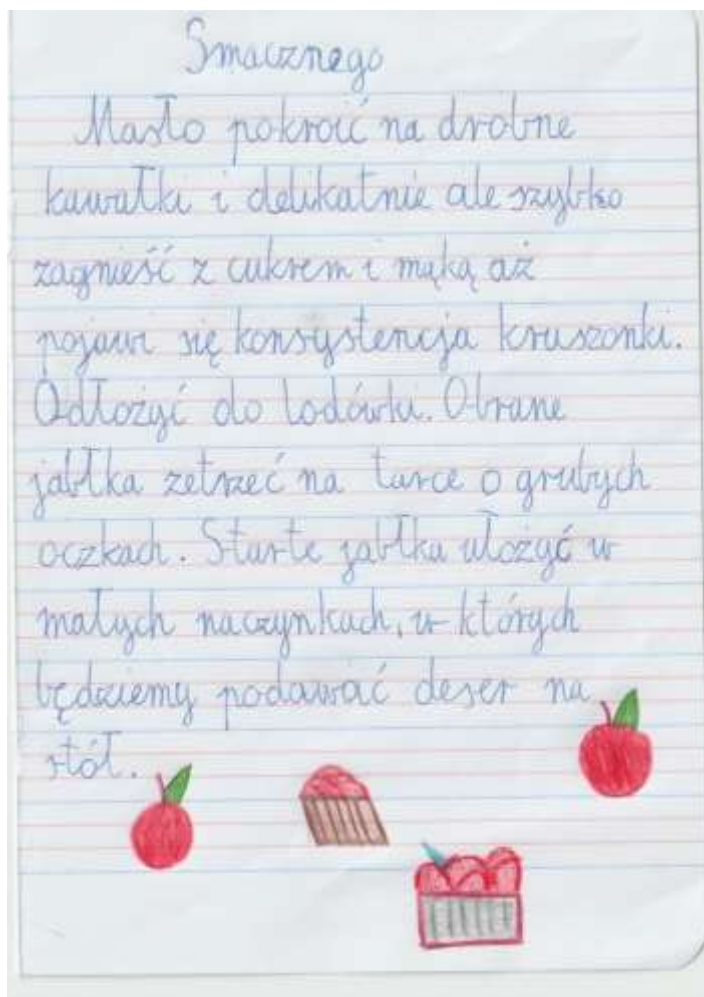 Smacznego
Masło pokroić na drobne
kawałki i delikatnie ale szybko
zagnieść z cukrem i mąką aż
pojawi się konsystencja kruszonki.
Odłożyć do lodówki. Obrane
jabłka zetrzeć na tarce o grubych
oczkach. Starte jabłka ułożyć w
małych naczynkach, w których
będziemy podawać deser na
stół.